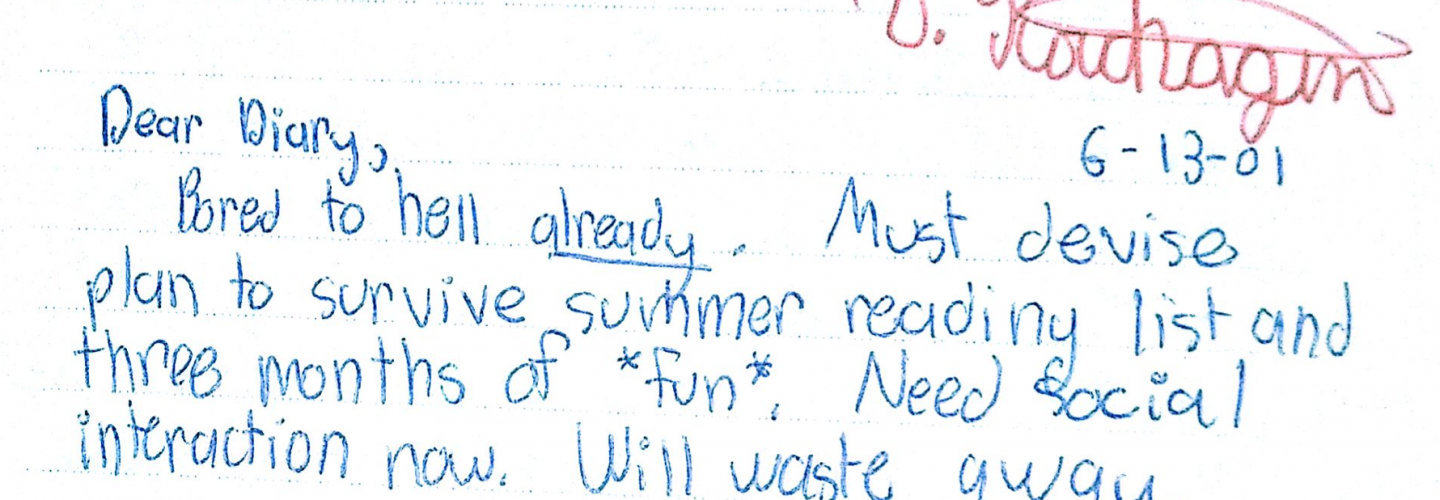 Dear Diary,
6-13-01
Bored to hell already. Must devise
plan to survive summer reading list and
three months of *fun*. Need social
interaction now. Will waste away